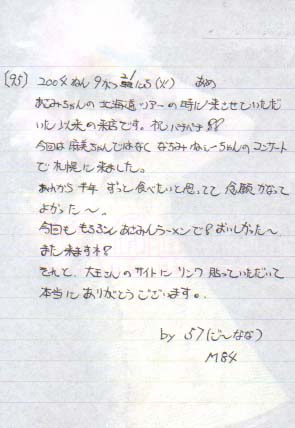 (95) 2004ねん 9がつ 21にち(火) あめ
あさみちゃんの北海道ツアーの時に来させていただ
いた以来の来店です。祝パチパチ88
今回は麻美ちゃんではなくなるみねぇーちゃんのコンサート
で札幌に来ました。
あれから半年 ずっと食べたいと思ってて念願かなって
よかった〜。
今回ももちろん あさみんラーメンで8おいしかった〜
また来ます
それと、大王さんのサイトにリンク貼っていただいて
本当にありがとうございます。
by 57(ご〜なな)
M84